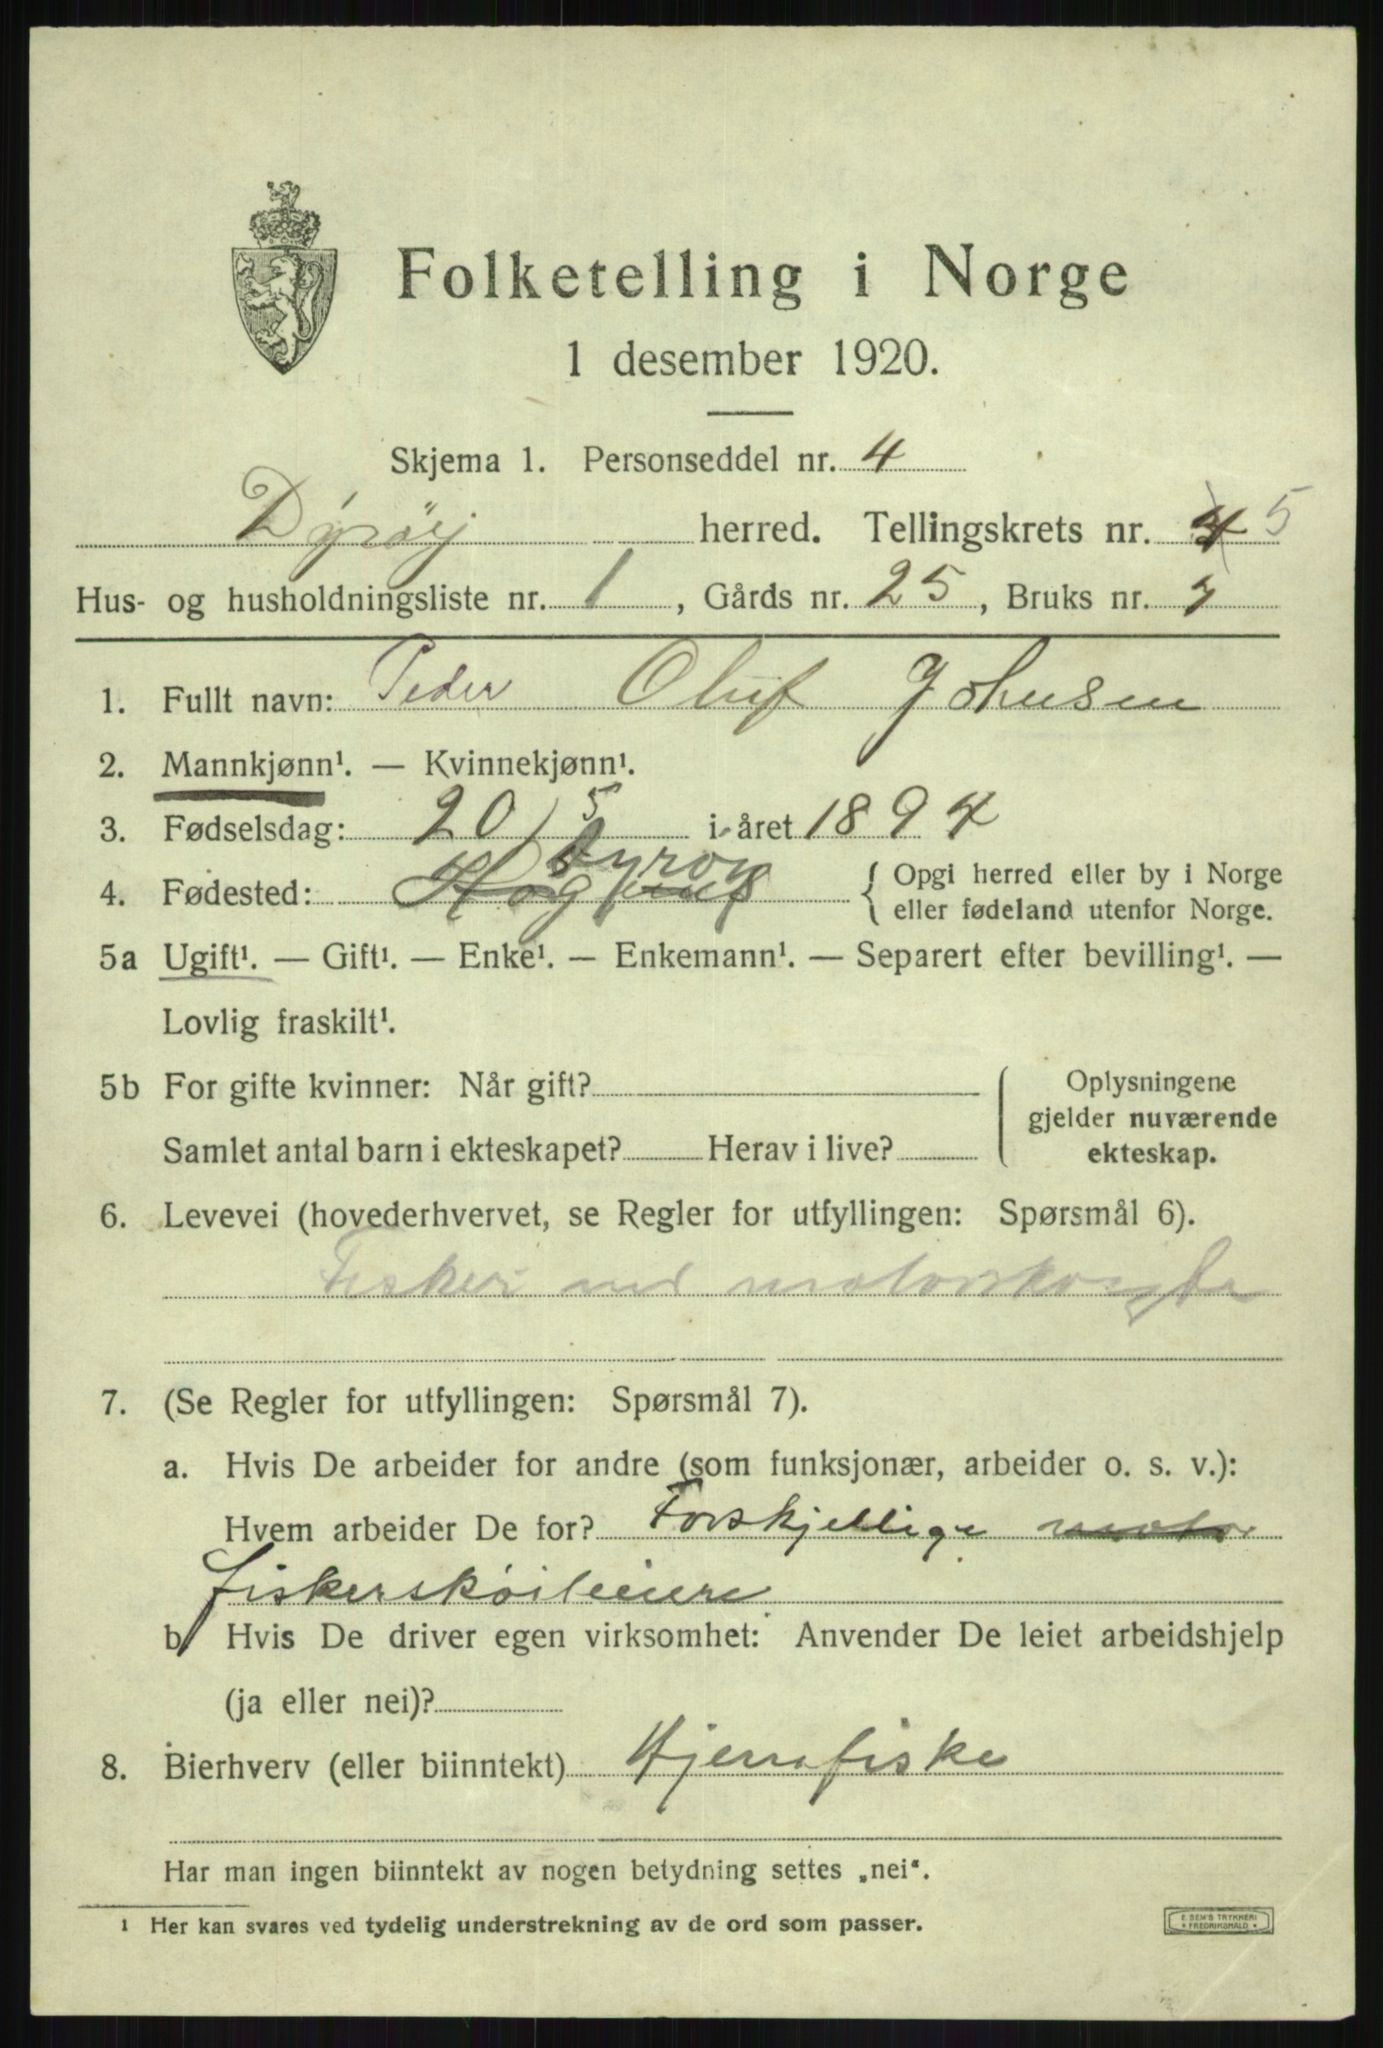 Folketelling i Norge
1 desember 1920.
Skjema 1. Personseddel nr. 4
Dyröy herred. Tellingskrets nr. 4 5
Hus- og husholdningsliste nr. 1, Gårds nr. 25, Bruks nr.
1. Fullt navn: Peder Oluf Johnsen
2. Mannkjønn¹. — Kvinnekjønn¹.
3. Fødselsdag: 20/5 i året 1894
Dyröy
4. Fødested: { Opgi herred eller by i Norge
eller fødeland utenfor Norge.
5a Ugift¹. — Gift¹. — Enke¹. — Enkemann¹. — Separert efter bevilling¹. —
Lovlig fraskilt¹.
5b For gifte kvinner: Når gift? { Oplysningene
gjelder nuværende
Samlet antal barn i ekteskapet? Herav i live? ekteskap.
6. Levevei (hovederhvervet, se Regler for utfyllingen: Spørsmål 6).
Fisker med motorskøyte
7. (Se Regler for utfyllingen: Spørsmål 7).
a. Hvis De arbeider for andre (som funksjonær, arbeider o. s. v.):
Hvem arbeider De for? Forskjellige motor
fiskerskøileiere
b Hvis De driver egen virksomhet: Anvender De leiet arbeidshjelp
(ja eller nei)?
8. Bierhverv (eller biinntekt) Hjemmefiske
Har man ingen biinntekt av nogen betydning settes „nei“.
¹ Her kan svares ved tydelig understrekning av de ord som passer.
E. SEM'S TRYKKERI
FREDRIKSHALD